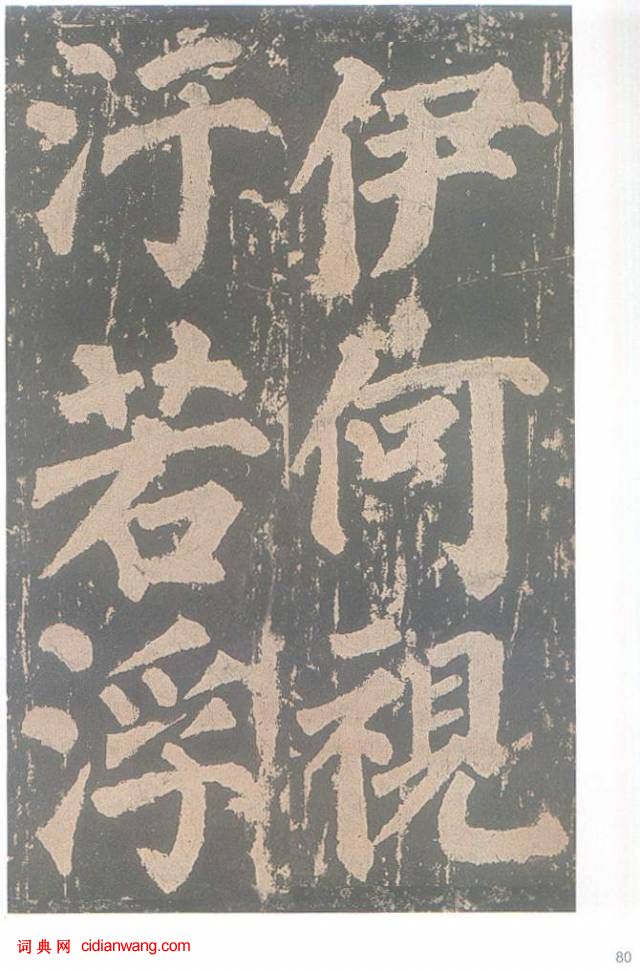 伊何視
汙若浮
词典网 cidianwang.com
80